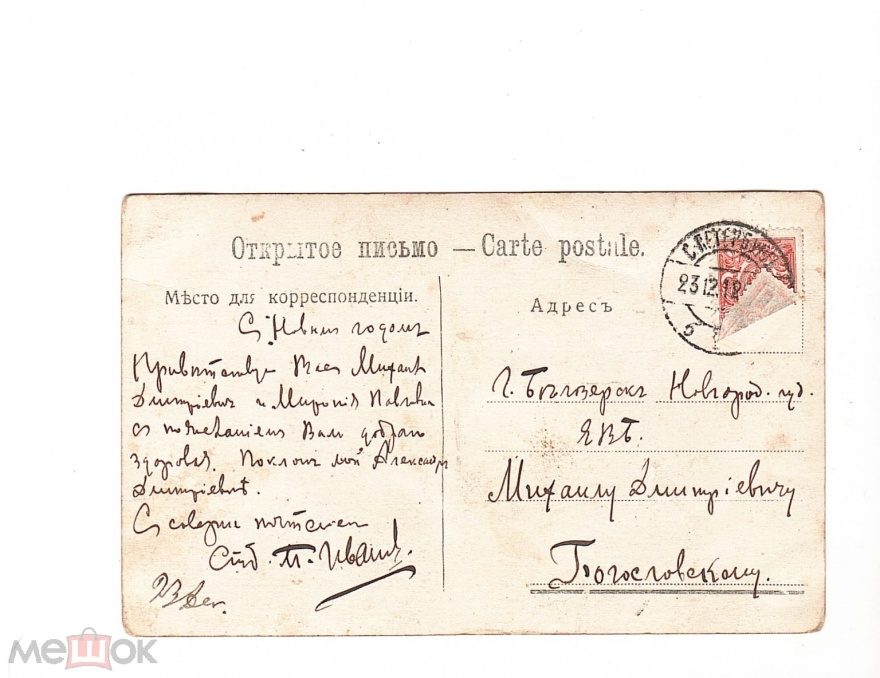 Открытое письмо — Carte postale.
Мѣсто для корреспонденціи.
Съ Новымъ годомъ
Привѣтствую Васъ Михаилъ
Дмитріевичъ и
съ пожеланіемъ Вамъ добраго
здоровья. Поклонъ мой Александръ
Дмитріевнѣ.
Съ почтеніем
П. Иванъ.
23 Дек.
Адресъ
С.ПЕТЕРБУРГ
23 12 12
г. Бѣлозерскъ Новгород. губ.
ЕВБ.
Михаилу Дмитріевичу
Богословскому.
мешок